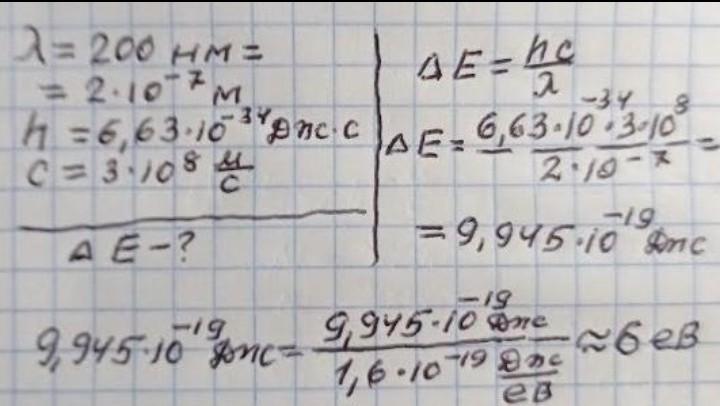 λ = 200 нм =
= 2·10⁻⁷ м
h = 6,63·10⁻³⁴ Дж·с
c = 3·10⁸ м/с
ΔE – ?
ΔE = hc/λ
ΔE = (6,63·10⁻³⁴·3·10⁸)/(2·10⁻⁷) =
= 9,945·10⁻¹⁹ Дж
9,945·10⁻¹⁹ Дж = (9,945·10⁻¹⁹ Дж)/(1,6·10⁻¹⁹ Дж/еВ) ≈ 6 еВ